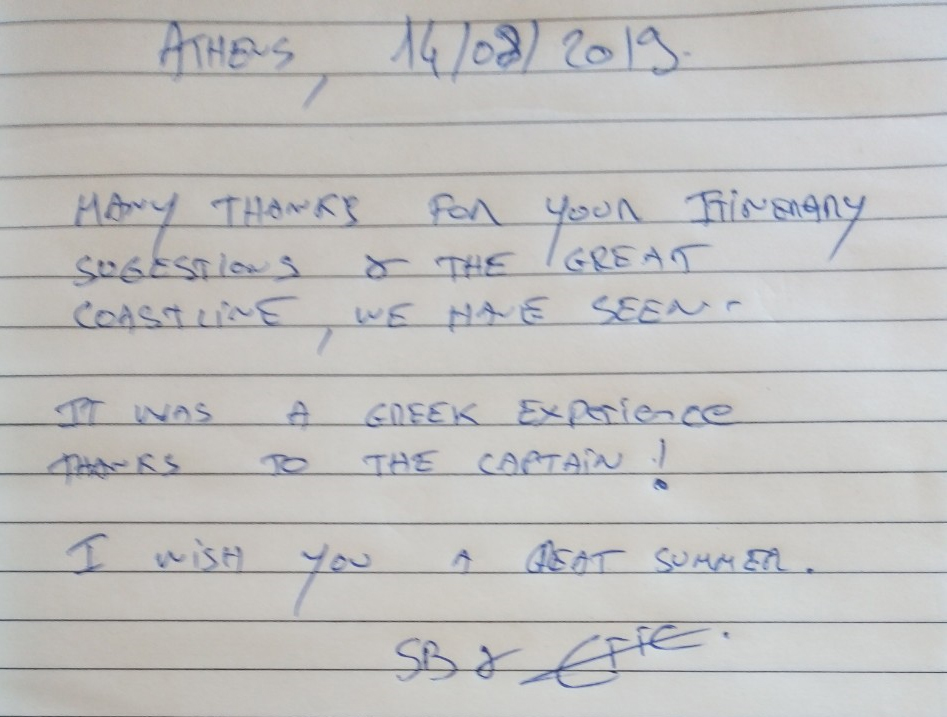 ATHENS, 14/08/2019.
MANY THANKS FOR YOUR ITINERARY
SUGESTIONS & THE GREAT
COASTLINE, WE HAVE SEEN.
IT WAS A GREEK EXPERIENCE
THANKS TO THE CAPTAIN!
I WISH YOU A GEAT SUMMER.
SB &